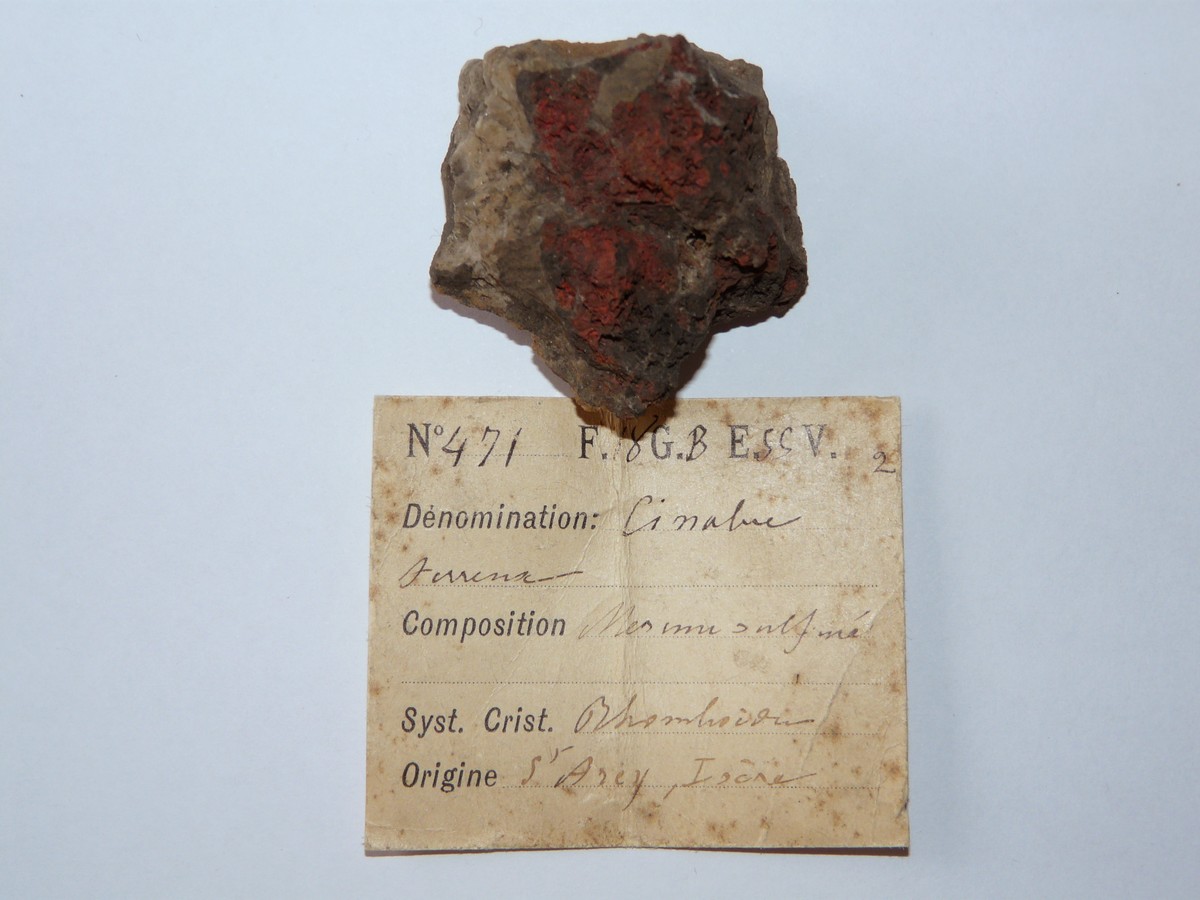 Nº 471 F. 18 G. B E. 55 V. 2
Dénomination: Cinabre
terreux
Composition Mercure sulfuré
Syst. Crist. Rhomboédr
Origine St Arey, Isère